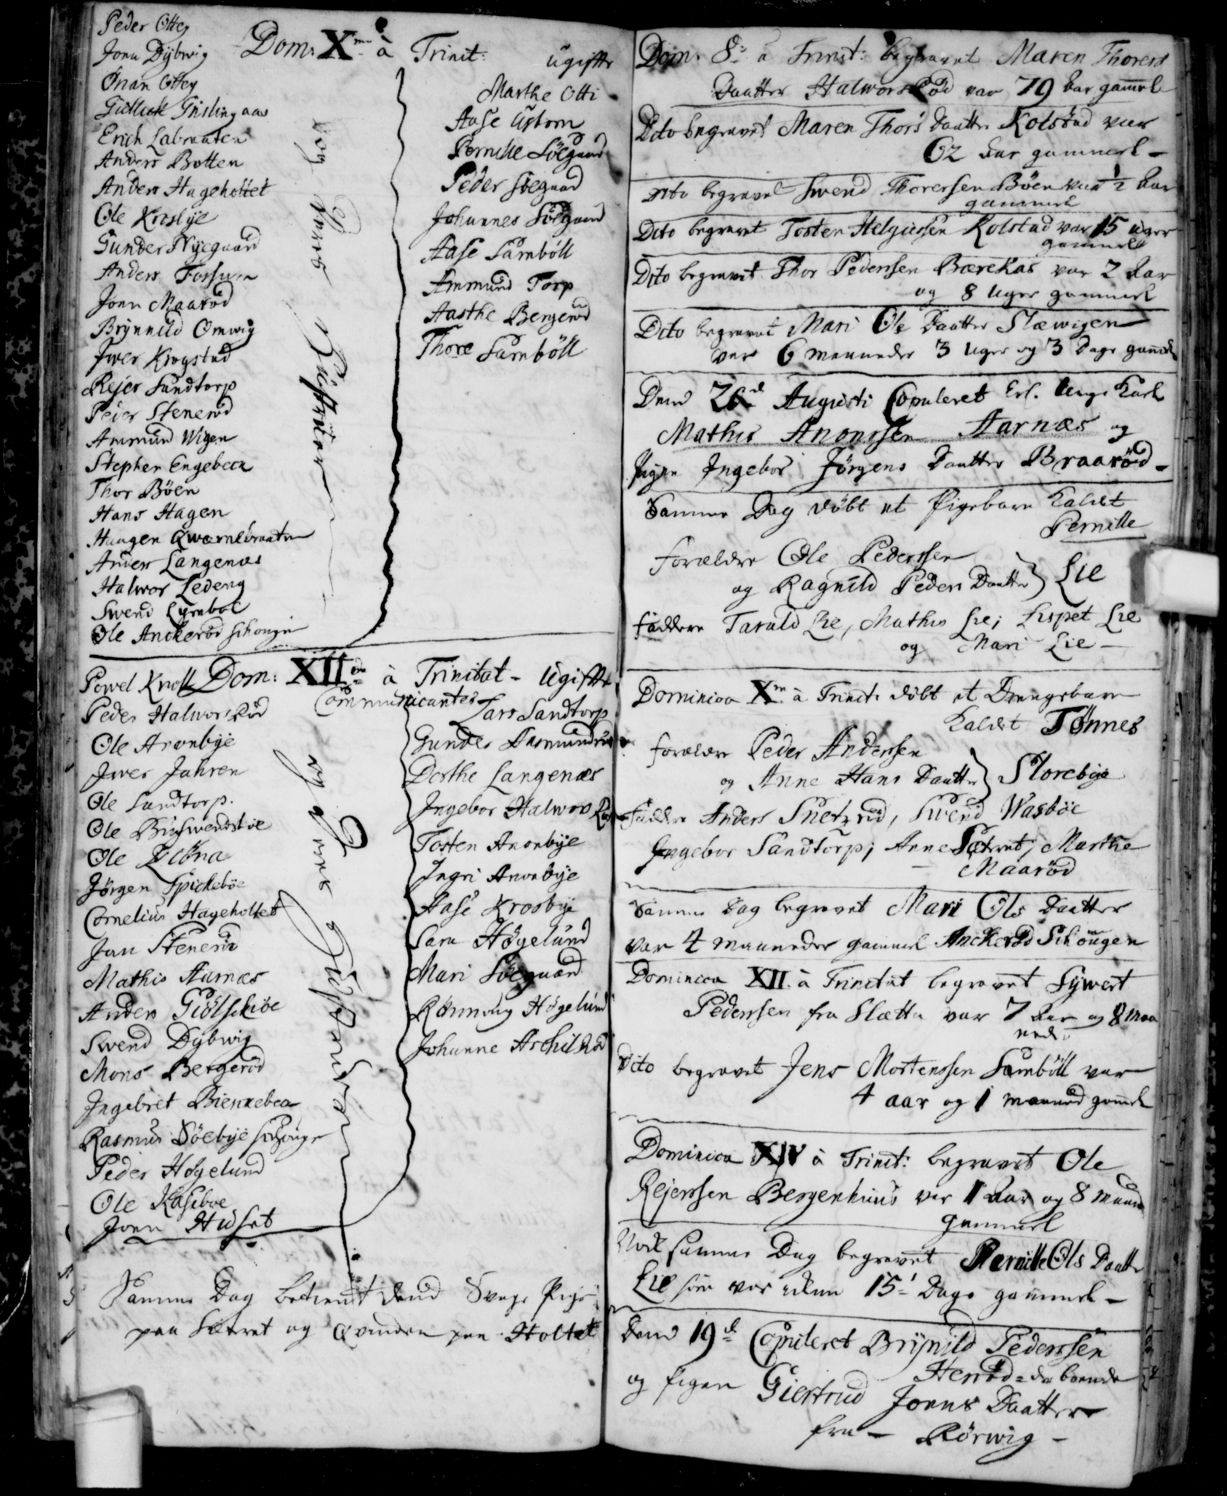 Dom: Xme à Trinit:
Peder Ottes
Joen Dybwig
Onan Ottes
Gudlich Gislingaas
Erich Labraaten
Anders Botten
Anders Hageholtet
Ole Krosbÿe
Gunder Nygaard
Anders Fossum
Joen Maarød
Brynnild Omwig
Jwer Krogstad
Rejer Sandtorp
Peder Stenerød
Ammund Wigen
Stephen Engebeck
Thor Böen
Hans Hagen
Haagen Qwærnebraaten
Anders Langenæs
Halwor Ledeng
Swend Lÿrnbøl
Ole Anckerød Schougn
og deres Hustruer
ugiffte
Marthe Otti
Aase Assborn
Pernille Söegaard
Peder Söegaard
Johannes Söegaard
Aase Larnböll
Ammund Torp
Aasthe Bergerød
Thore Larnböll
Dom: XII à Trinitat - Ugiffte
Communicantes
Powel Knoll
Peder Halworsrød
Ole Aronbÿe
Jwer Jahren
Ole Sandtorp.
Ole
Ole
Jørgen Spickebøe
Cornelius Hageholtet
Jan Stenerød
Mathis Aarnæs
Anders Giølschiöe
Swend Dybwig
Mons Bergerød
Ingebret Bierkebeck
Rasmus Söebÿe Schougn
Peder Høgelund
Ole Kaseboe
Joen Hulset
og deres Hustruer
Lars Sandtorp
Gunder Aasmundrød
Dorthe Langenæs
Ingebor Halworsrød
Tosten Aronbÿe
Ingri Aronbÿe
Aase Krosbÿe
Sara Høgelund
Mari Söegaard
Rønnoug Høgelund
Johanne Aschilsrød
Samme Dag betient dend Svage Pige
paa Sætret og Qvinden paa Holtet
Dom: 8de à Trinit: begravet Maren Thores
Daatter Halworsrød var 79 Aar gamel
Dito begravet Maren Thors Daatter Kolstad var
62 Aar gammel -
Dito begravet Swend Thorersen Böen var 1/2 Aar
gammel
Dito begravet Tosten Helgiessen Kolstad var 15 uger
gammel
Dito begravet Thor Pedersen Bærekas var 2 Aar
og 8 Uger gammel
Dito begravet Mari Ole Daatter Slæwigen
var 6 maaneder 3 Uger og 3 Dage gamel
Dend 26d Augusti Copuleret Erl. Unge Karl
Mathis Anonssen Aarnæs og
Pigen Ingebor Jörgens Daatter Braarød -
Samme Dag döbt et Pigebarn kaldet
Pernille
Forældre Ole Pederssen
og Ragnild Peders Daatter } Lie
Faddere Tarald Lie, Mathis Lie, Lispet Lie
og Mari Lie -
Dominica Xme à Trinit: döbt et Drengebarn
kaldet Tønnes
forældre Peder Anderssen
og Anne Hans Daatter } Storebÿe
Faddere Anders Snesrud, Swend Wasböe
Ingebor Sandtorp, Anne Sætret, Marthe
Maarød
Samme Dag begravet Mari Ols Daatter
var 4 maaneder gammel Anckerød Schougen
Dominica XII à Trinitat begravet Sÿwert
Pederssen fra Slætta var 7 Aar og 8 maa
neder
Dito begravet Jens Mortenssen Larnböll var
4 aar og 1 maaned gamel
Dominica XIV à Trinit: begravet Ole
Rejerssen Bergenhuus var 1 Aar og 8 maaned
gammel
Nock samme Dag begravet Pernille Ols Daatter
Lie som var iklun 15 Dage gammel -
Dend 19de Copuleret Brÿnild Pederssen
Herrød = da boende
og pigen Giertrud Joens Daatter
fra - Rörwig -